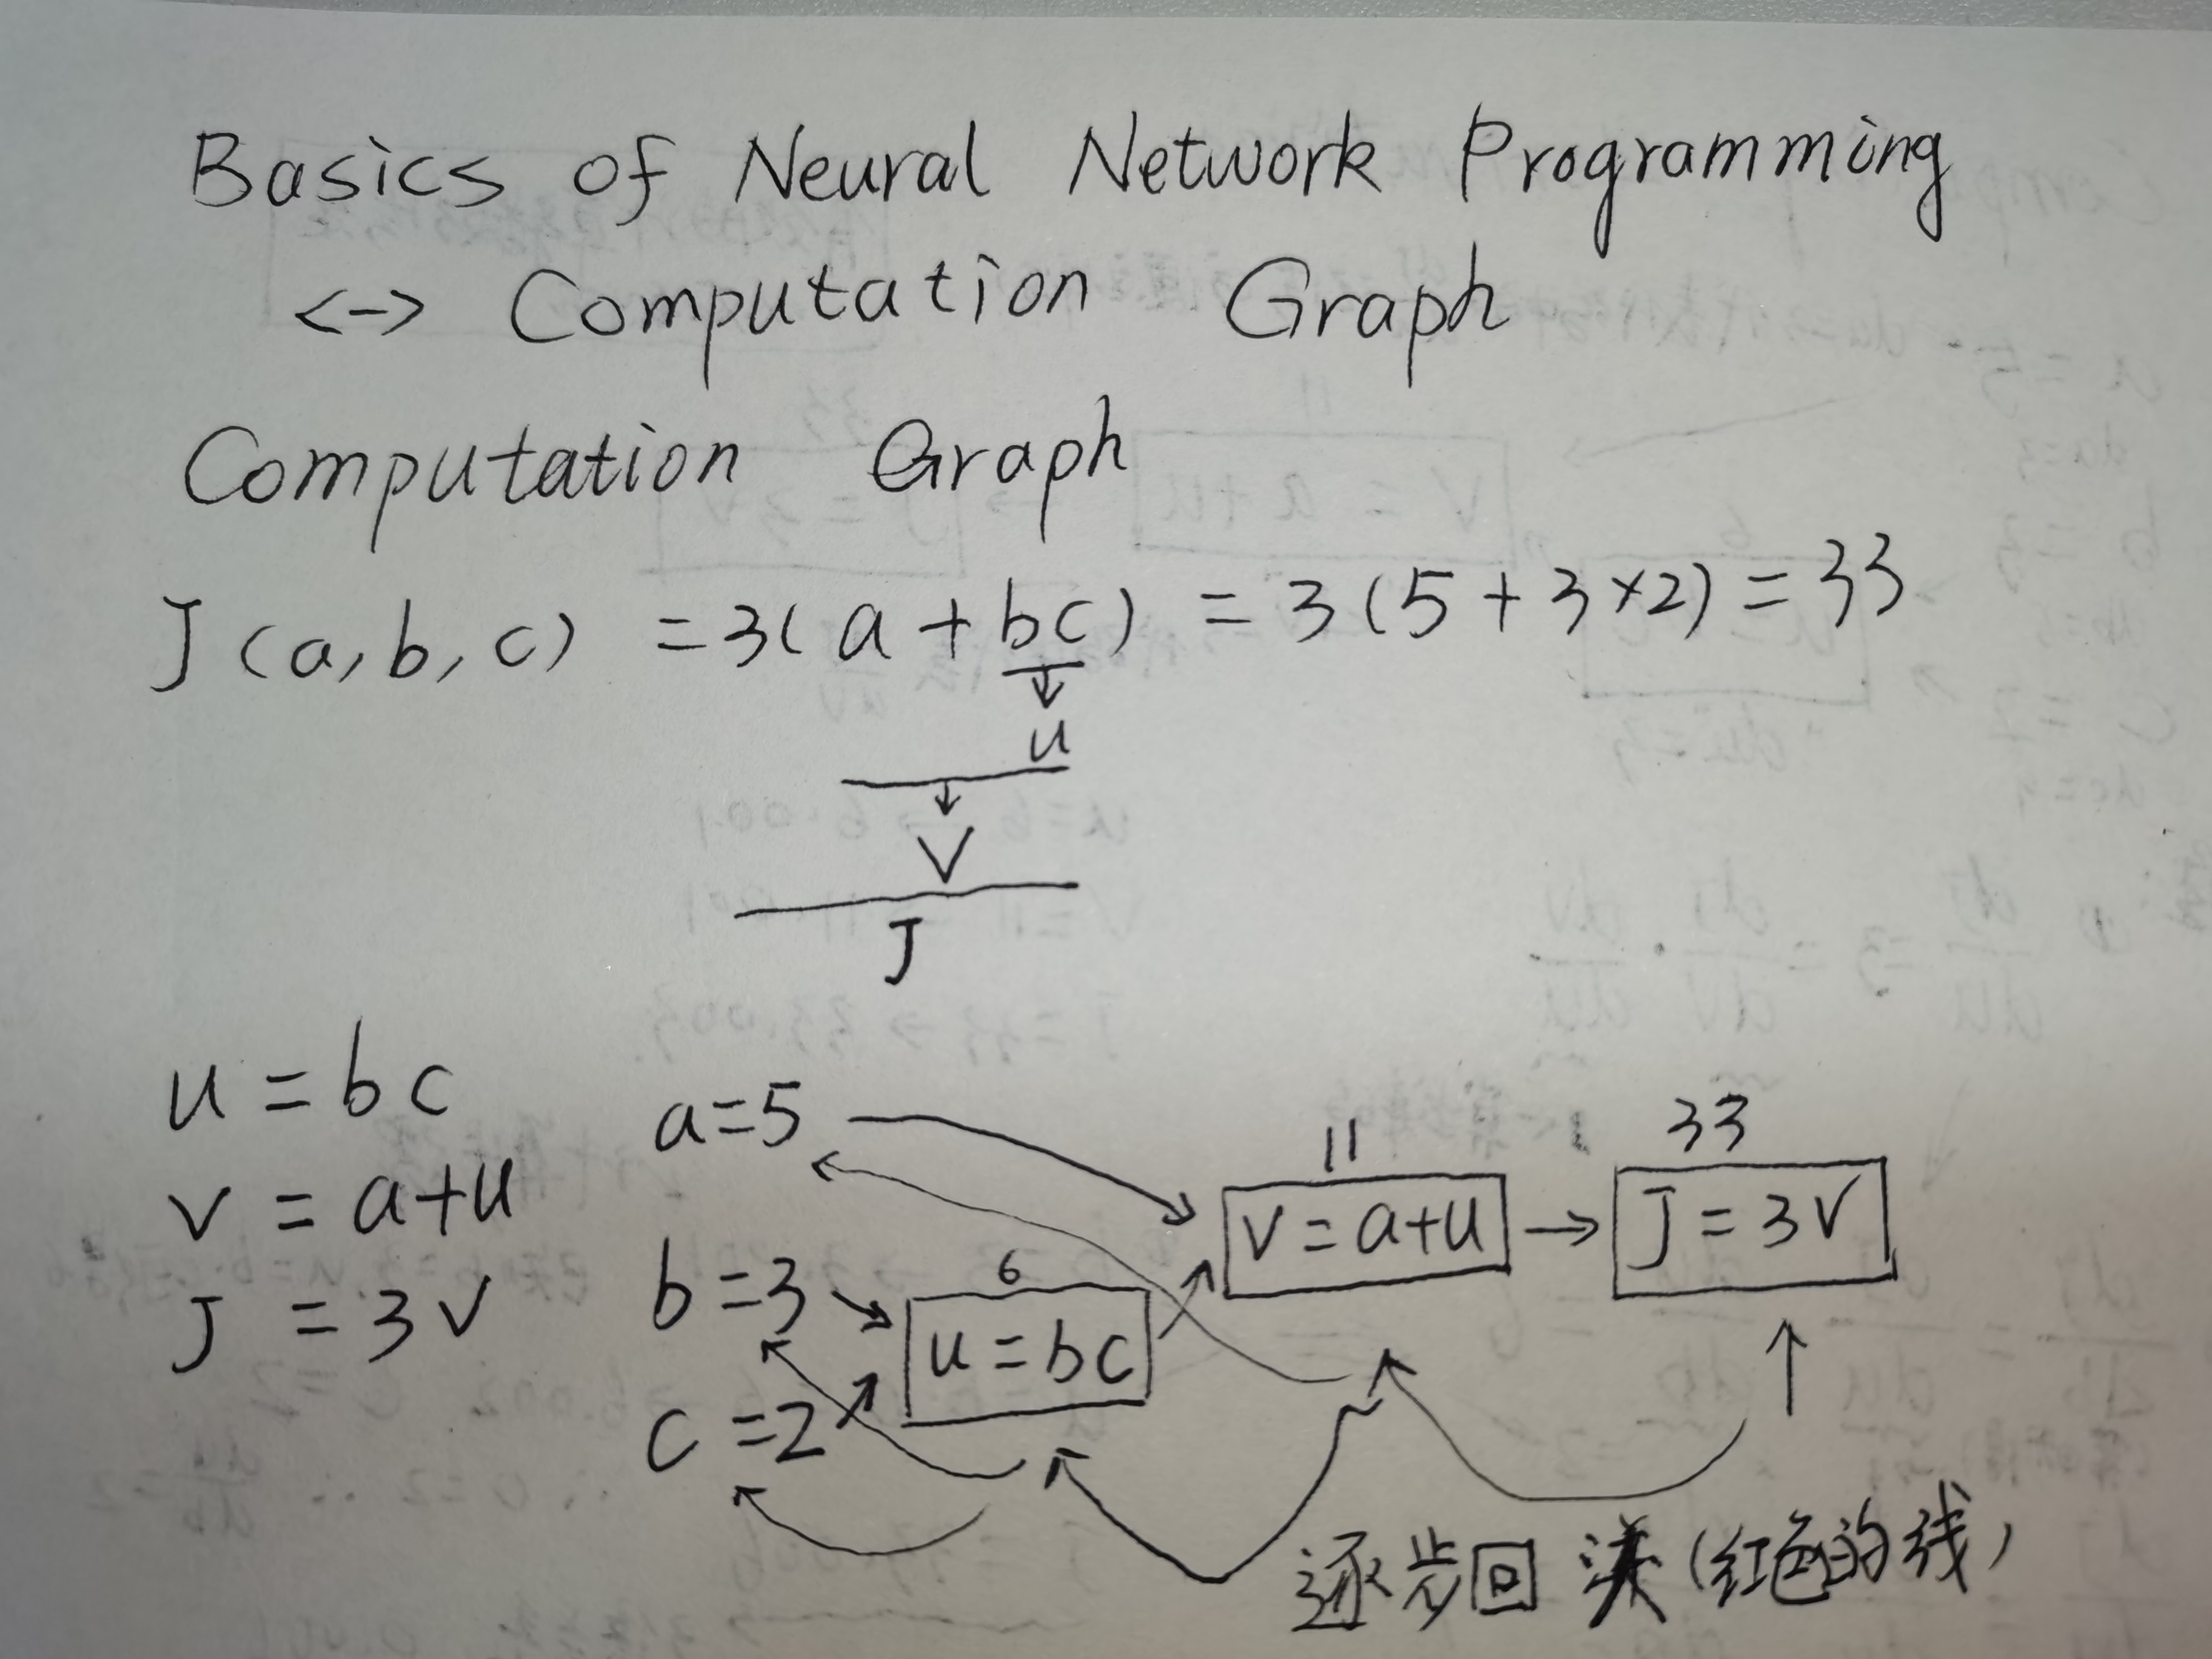 Basics of Neural Network Programming
<-> Computation Graph
Computation Graph
J(a,b,c) =3(a+bc) = 3(5+3×2)=33
↓
u
↓
V
J
u = bc
v = a+u
J = 3v
a=5
b=3
c=2
6
u=bc
11
v=a+u → J=3v
33
逐步回 (红色的线)